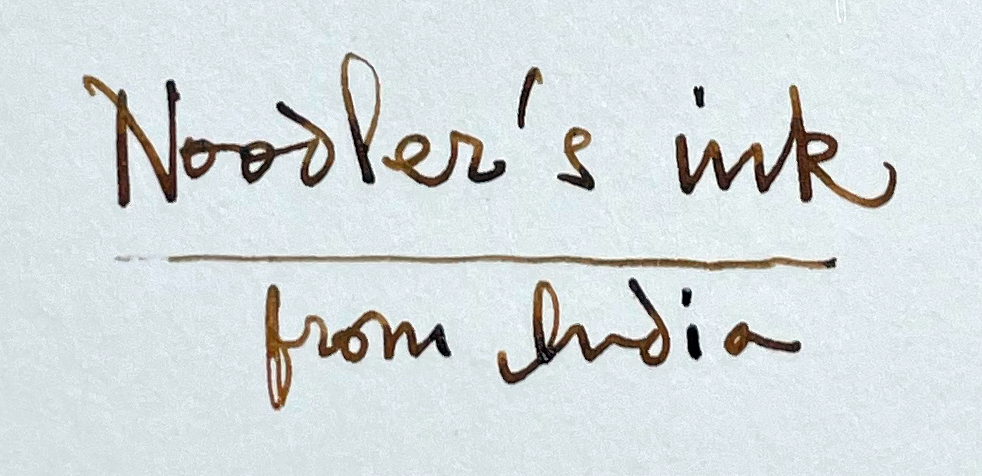 Noodler's ink
from India